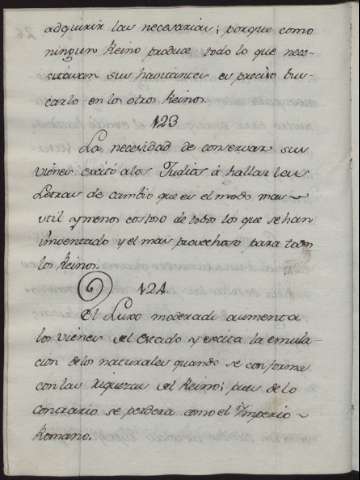 adquirir las necesarias; porque como
ningun Reino produce todo lo que nece-
sitavan sus havitantes es preciso bus-
carlo en los otros Reinos.
123
La necesidad de conservar sus
vienes excitó a los Judios á hallar las
Letras de cambio que es el modo mas
util y menos costoso de todos los que se han
imventado y el mas provechoso para todos
los Reinos.
124
El Luxo moderado aumenta
los vienes del Estado y excita la emula-
cion de los naturales quando se conforma
con las Riquezas del Reino; pues de lo
contrario se perderá como el Imperio
Romano.